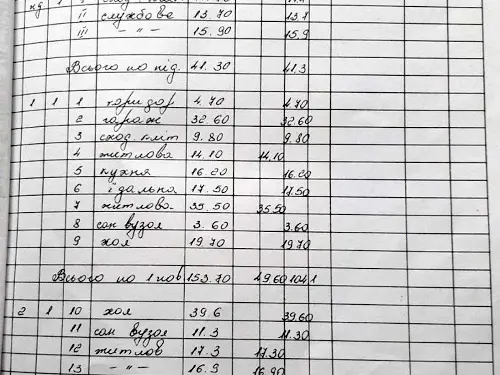 II службова 13.70 13.7
III -"- 15.90 15.9
Всього по під. 41.30 41.3
1 1 1 коридор 4.70 4.70
2 гараж 32.60 32.60
3 сход. кліт 9.80 9.80
4 житлова 14.10 14.10
5 кухня 16.20 16.20
6 їдальна 17.50 17.50
7 житлова 35.50 35.50
8 сан вузол 3.60 3.60
9 хол 19.70 19.70
Всього по 1 пов 153.70 49.60 104.1
2 1 10 хол 39.6 39.60
11 сан вузол 11.3 11.30
12 житлов 17.3 17.30
13 -"- 16.9 16.90